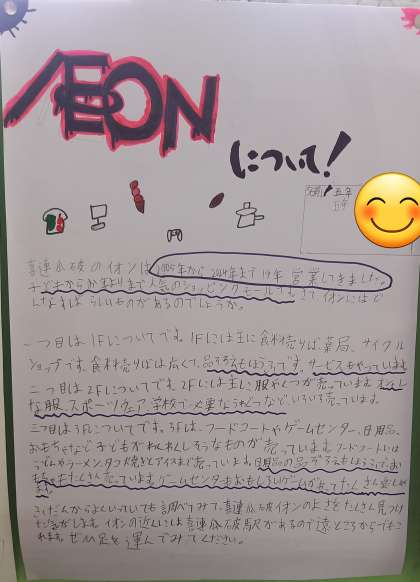 ÆON
について!
名前 五年
喜連瓜破のイオンは、2005年から2024年まで19年 営業してきました。
子どもからお年よりまで人気のショッピングモールです。さて イオンにはど
んなすばらしいものがあるのでしょうか。
一つ目は1Fについてです。1Fには主に食料売りば、薬局、サイクル
ショップです。食料売りばは広くて、品ぞろえもほうふです。サービスもやっています
二つ目は2Fについてです。2Fには主に服やくつが売っています。オシャレ
な服、スポーツウェア、学校で必要なうわぐつなど、いろいろ売っています。
三つ目は3Fについてです。3Fは、フードコートやゲームセンター、日用品、
おもちゃなど子どもがわくわくしそうなものが売っています。フードコートには
うどんやラーメン、タコ焼きとアイスまで売っています。日用品の品ぞろえもほうふで、お
もちゃもたくさん売っています。ゲームセンターもおもしろいゲームがあってたくさん楽しめ
ます。
ふだんからよくいっていても調べてみて、喜連瓜破イオンのよさをたくさん見つけ
た気がします。イオンの近くには喜連瓜破駅があるので遠いところからでもこ
れます。ぜひ足を運んでみてください。